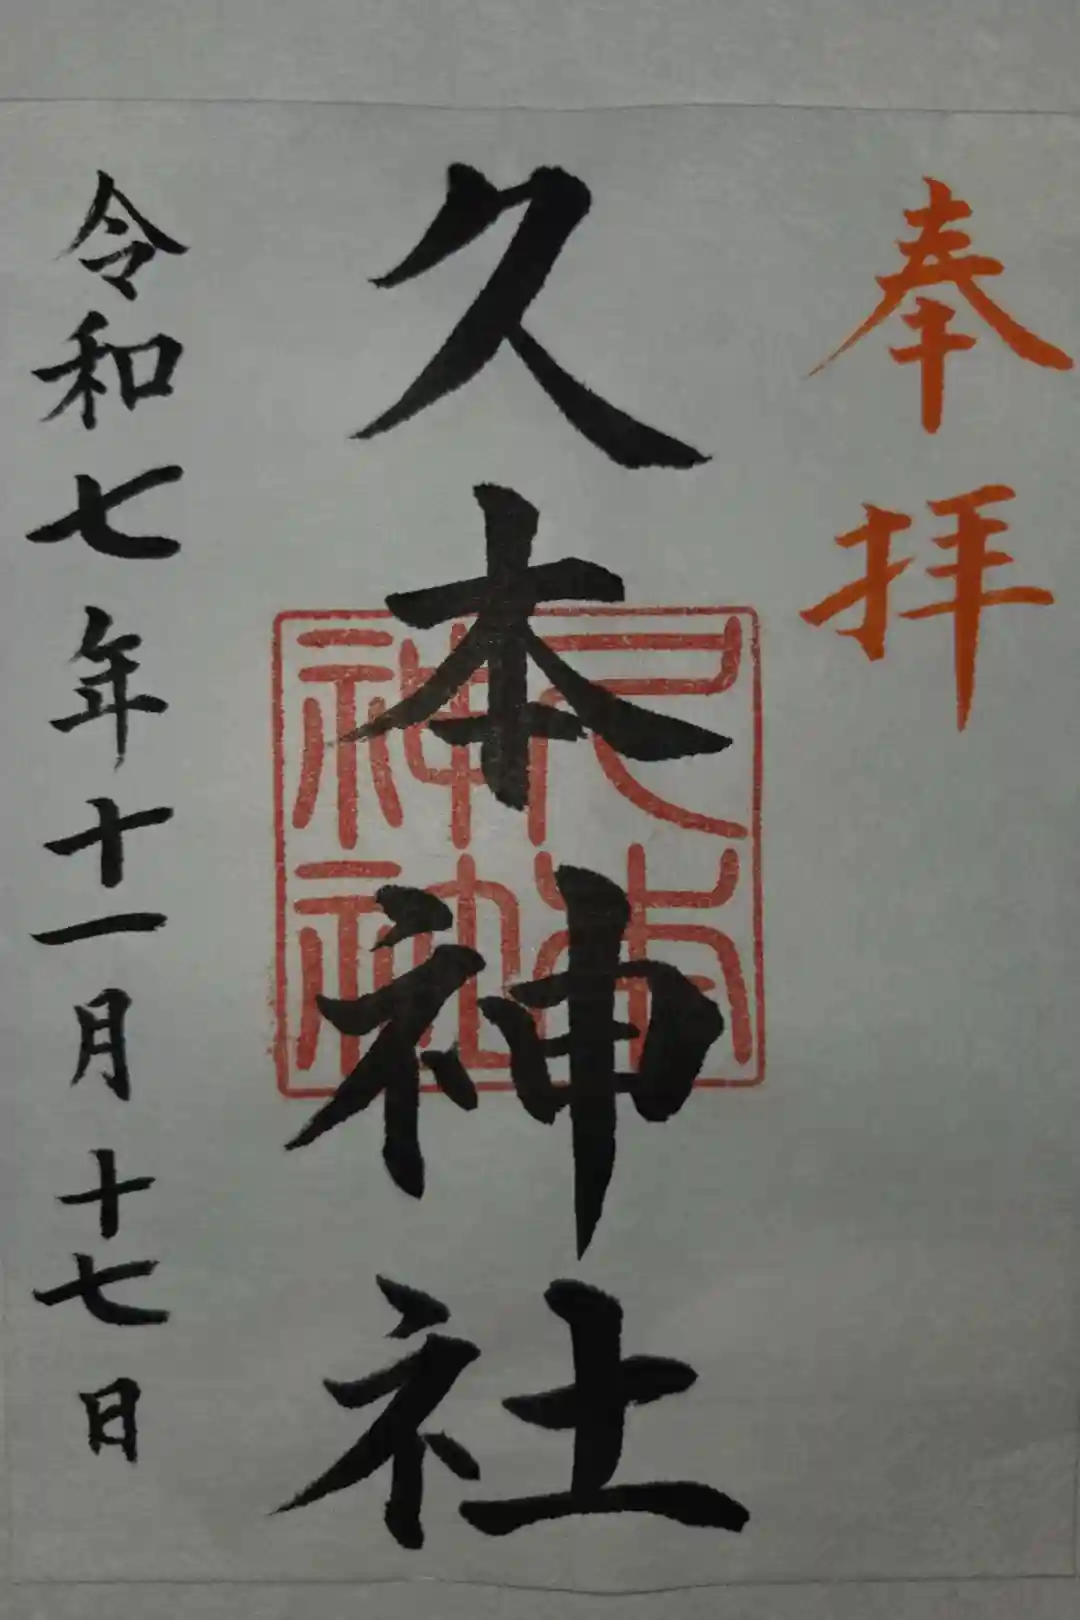 奉拝
久本神社
久本神社
令和七年十一月十七日